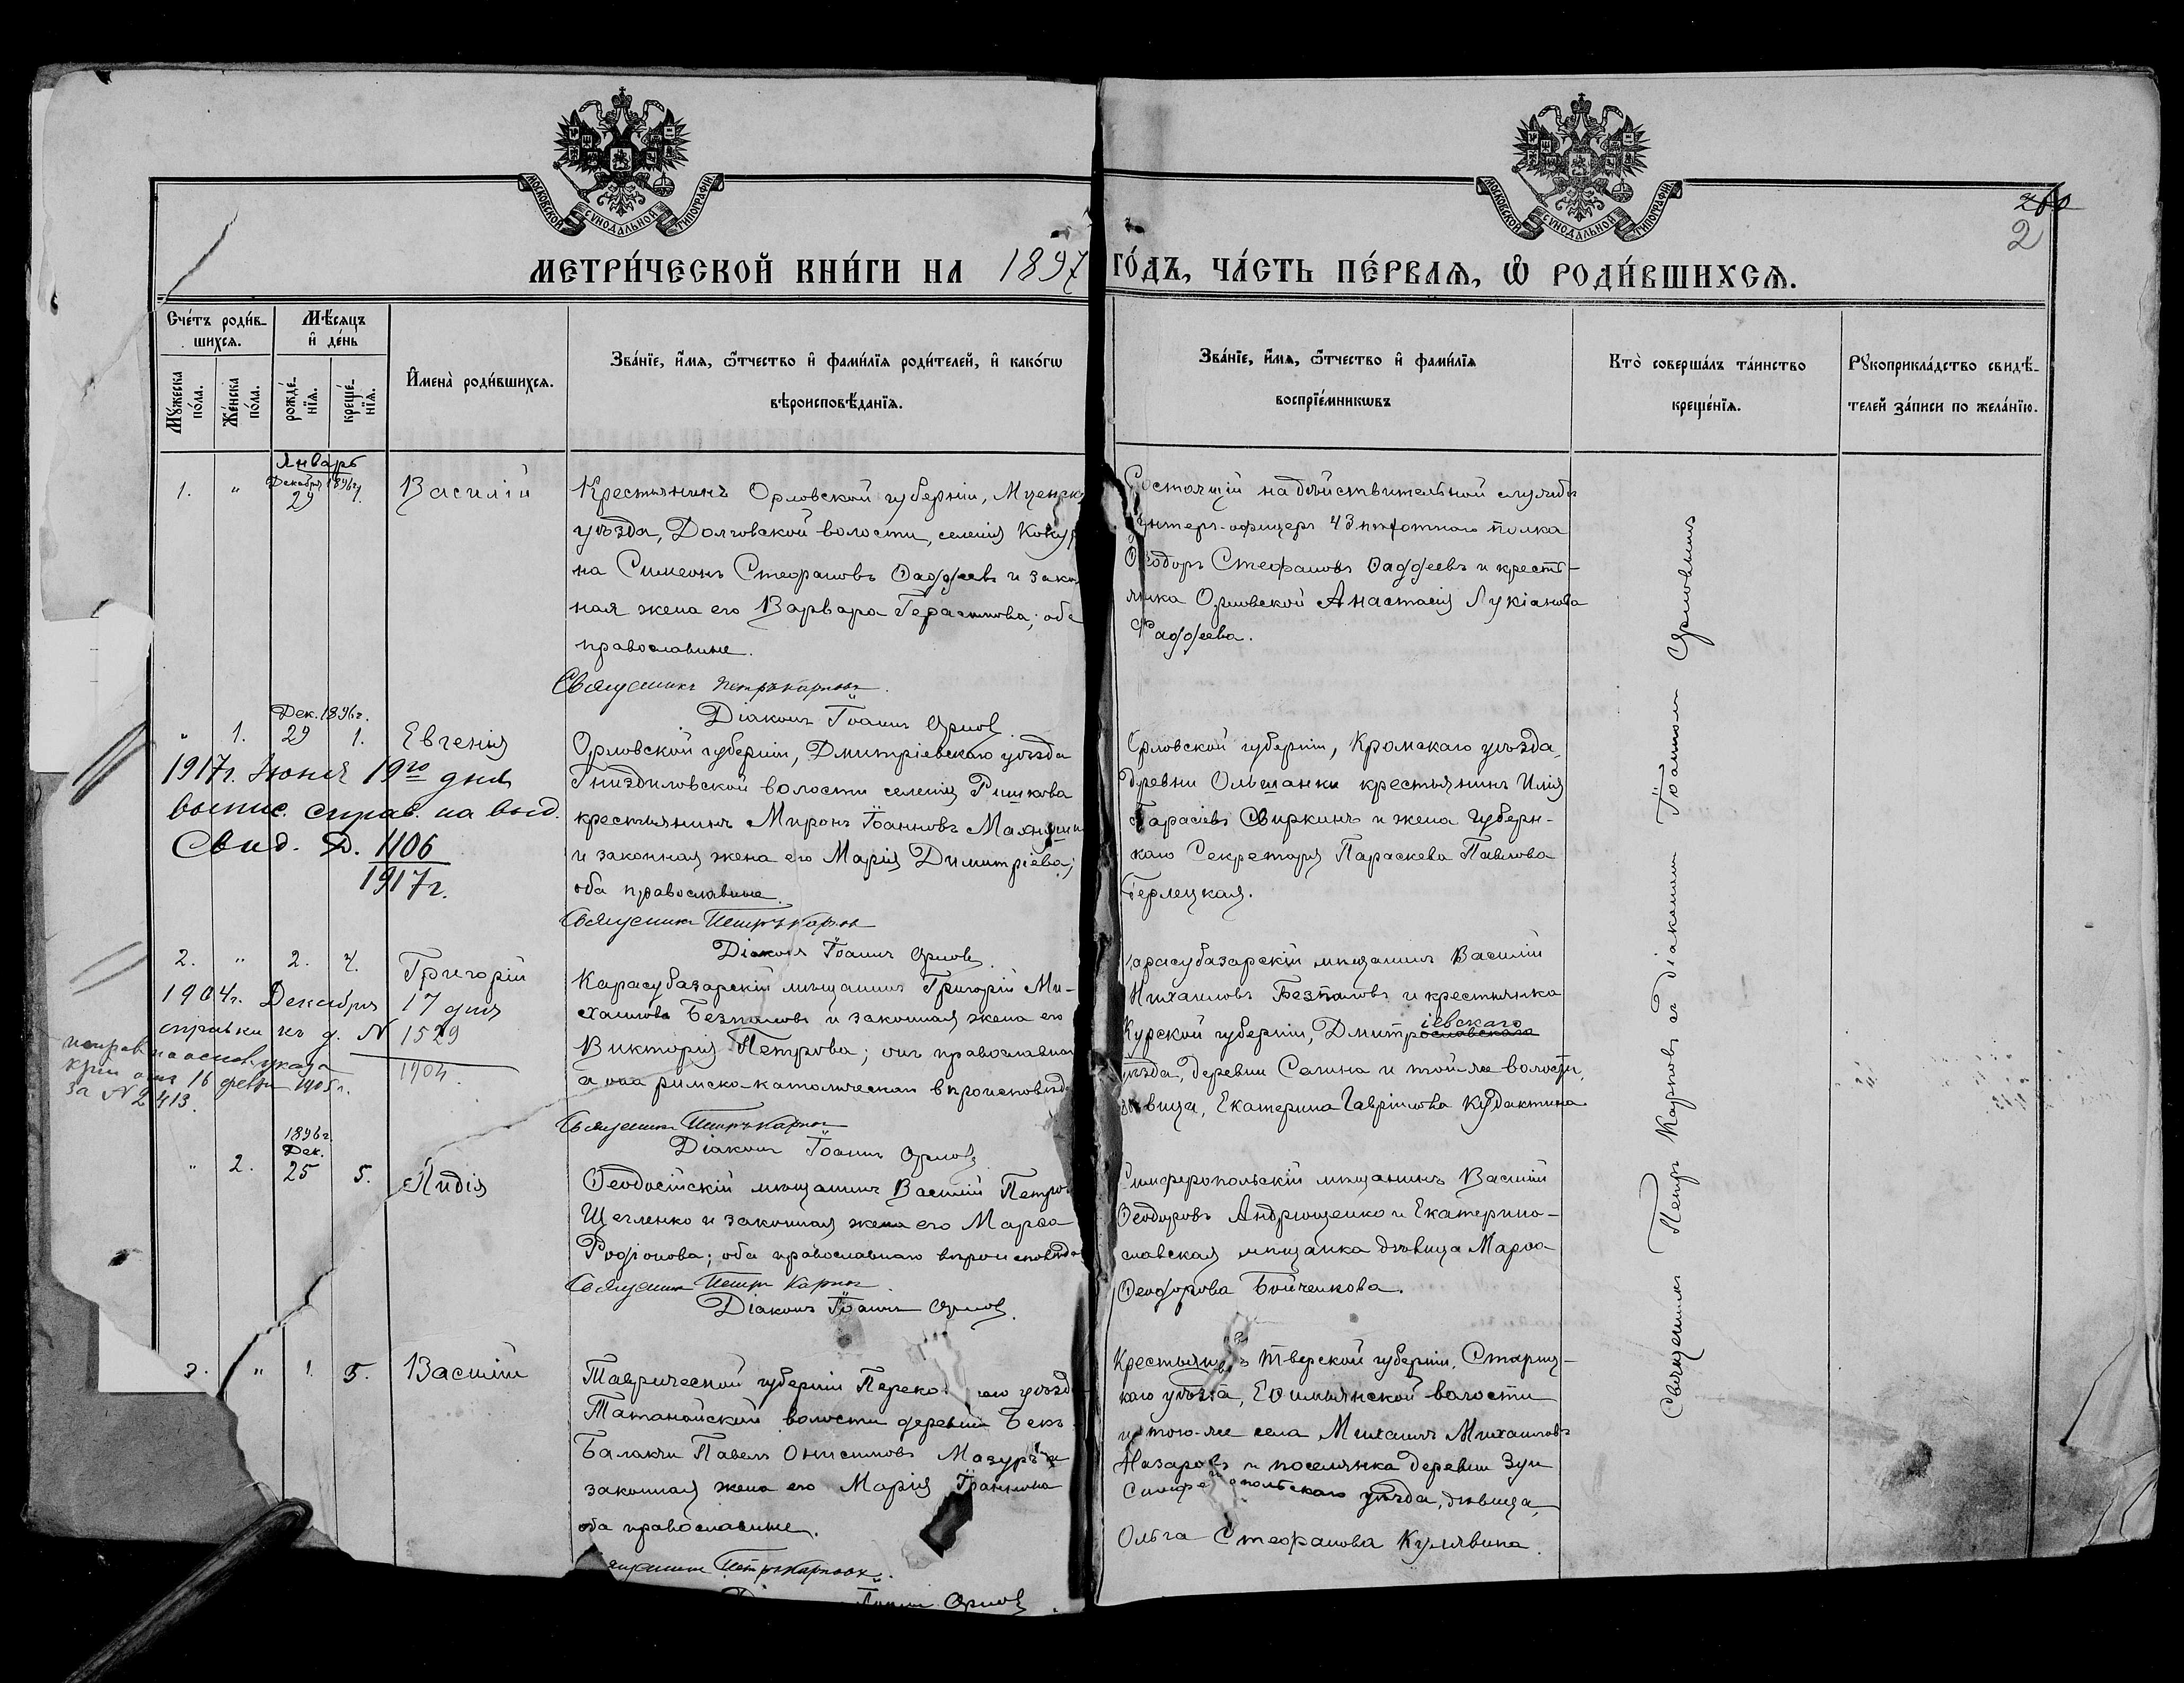 МОСКОВСКОЙ СУНОДАЛЬНОЙ ТИПОГРАФІИ
МОСКОВСКОЙ СУНОДАЛЬНОЙ ТИПОГРАФІИ
200
2
МЕТРИ́ЧЕСКОЙ КНИ́ГИ НА 1897 ГО́ДЪ, ЧА́СТЬ ПЕ́РВАѦ, Ѿ РОДИ́ВШИХСѦ.
Сче́тъ роди́в-
шихсѧ.
Мѣ́сѧцъ
и де́нь
Мꙋ́жеска по́ла.
Же́нска по́ла.
рожде́-
нїѧ.
креще́-
нїѧ.
И҆мена̀ роди́вшихсѧ.
Зва́нїе, и҆́мѧ, ѻ҆́тчество и҆ фами́лїѧ роди́телей, и҆ како́гѡ
вѣроисповѣ́данїѧ.
Зва́нїе, и҆́мѧ, ѻ҆́тчество и҆ фами́лїѧ
воспрїе́мникѡвъ
Кто̀ соверша́лъ та́инство
креще́нїѧ.
Рꙋкоприкла́дство свидѣ́-
телей за́писи по жела́нїю.
Январь
Декабря 1896 г.
1. " 29 1. Василій
Крестьянинъ Орловской губерніи, Мценск
уѣзда, Долговской волости, селенія Коку
на Симеонъ Стефановъ Ѳаддеевъ и закон
ная жена его Варвара Герасимова; оба
православные.
Священникъ Петръ Карповъ.
Діаконъ Іоаннъ Орловъ.
Состоящій на дѣйствительной службѣ
унтеръ-офицеръ 43 пѣхотнаго полка
Ѳеодоръ Стефановъ Ѳаддеевъ и кресть-
янка Орловской Анастасія Лукіанова
Ѳаддеева.
Дек. 1896 г.
" 1. 29 1. Евгенія
1917 г. Іюня 19го дня
выпис. справ. на выд.
Свид. Д. 1106
1917 г.
Орловской губерніи, Дмитріевскаго уѣзда
Гниздиловской волости селенія Рышкова
крестьянинъ Миронъ Іоанновъ
и законная жена его Марія Димитріева;
оба православные.
Священникъ Петръ Карповъ
Діаконъ Іоаннъ Орловъ.
Орловской губерніи, Кромскаго уѣзда,
деревни Ольшанки крестьянинъ Илія
Тарасіевъ Свиркинъ и жена Губерн-
каго Секретаря Параскева Павлова
Терлецкая.
2. " 2. 4. Григорій
1904 г. Декабря 17 дня
справки къ д. N 1529
1904.
исправ на основ. указа
16 февр. 1905 г.
за N 2413.
Карасубазарскій мѣщанинъ Григорій Ми-
хаиловъ Безпаловъ и законная жена его
Викторія Петрова; онъ православнаго
а она римско-католическаго вѣроисповѣд
Священникъ Петръ Карповъ
Діаконъ Іоаннъ Орловъ
Карасубазарскій мѣщанинъ Василій
Михаиловъ Безпаловъ и крестьянка
Курской губерніи, Дмитріевскаго
уѣзда, деревни Сапина и той же волости,
дѣвица, Екатерина Гавріилова Кудактина.
1896 г.
Дек.
" 2. 25 5. Лидія
Ѳеодосійскій мѣщанинъ Василій Петров
Щегленко и законная жена его Марѳа
Родіонова; оба православнаго вѣроисповѣда
Священникъ Петръ Карповъ.
Діаконъ Іоаннъ Орловъ.
Симферопольскій мѣщанинъ Василій
Ѳеодоровъ Андрющенко и Екатерино-
славская мѣщанка дѣвица Марѳа
Ѳеодорова Бойченкова.
3. " 1. 5. Василій
Таврической губерніи Переко аго уѣзд
Татанайской волости деревни Бекъ-
Балакчи Павелъ Онисимовъ Мазуръ и
законная жена его Марія
оба православные.
Священникъ Петръ Карповъ.
Діаконъ Іоаннъ Орловъ.
Крестьянинъ Тверской губерніи, Стариц-
каго уѣзда, Еѳимьянской волости
и того-же села Михаилъ Михаиловъ
Назаровъ и поселянка деревни Зуи
Симферопольскаго уѣзда, дѣвица,
Ольга Стефанова Кулявина.
Священникъ Петръ Карповъ съ діакономъ Іоанномъ Орловымъ